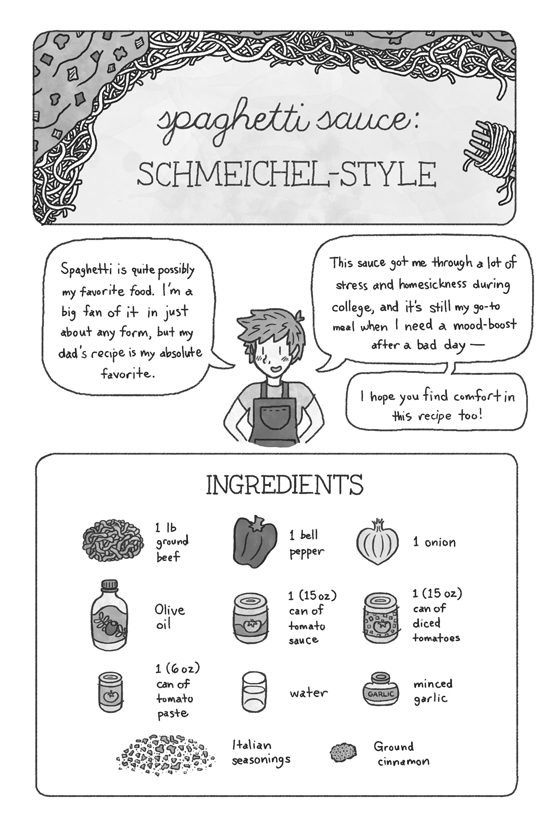 spaghetti sauce:
SCHMEICHEL-STYLE
Spaghetti is quite possibly
my favorite food. I'm a
big fan of it in just
about any form, but my
dad's recipe is my absolute
favorite.
This sauce got me through a lot of
stress and homesickness during
college, and it's still my go-to
meal when I need a mood-boost
after a bad day —
I hope you find comfort in
this recipe too!
INGREDIENTS
1 lb
ground
beef
1 bell
pepper
1 onion
Olive
oil
1 (15 oz)
can of
tomato
sauce
1 (15 oz)
can of
diced
tomatoes
1 (6 oz)
can of
tomato
paste
water
GARLIC
minced
garlic
Italian
seasonings
Ground
cinnamon